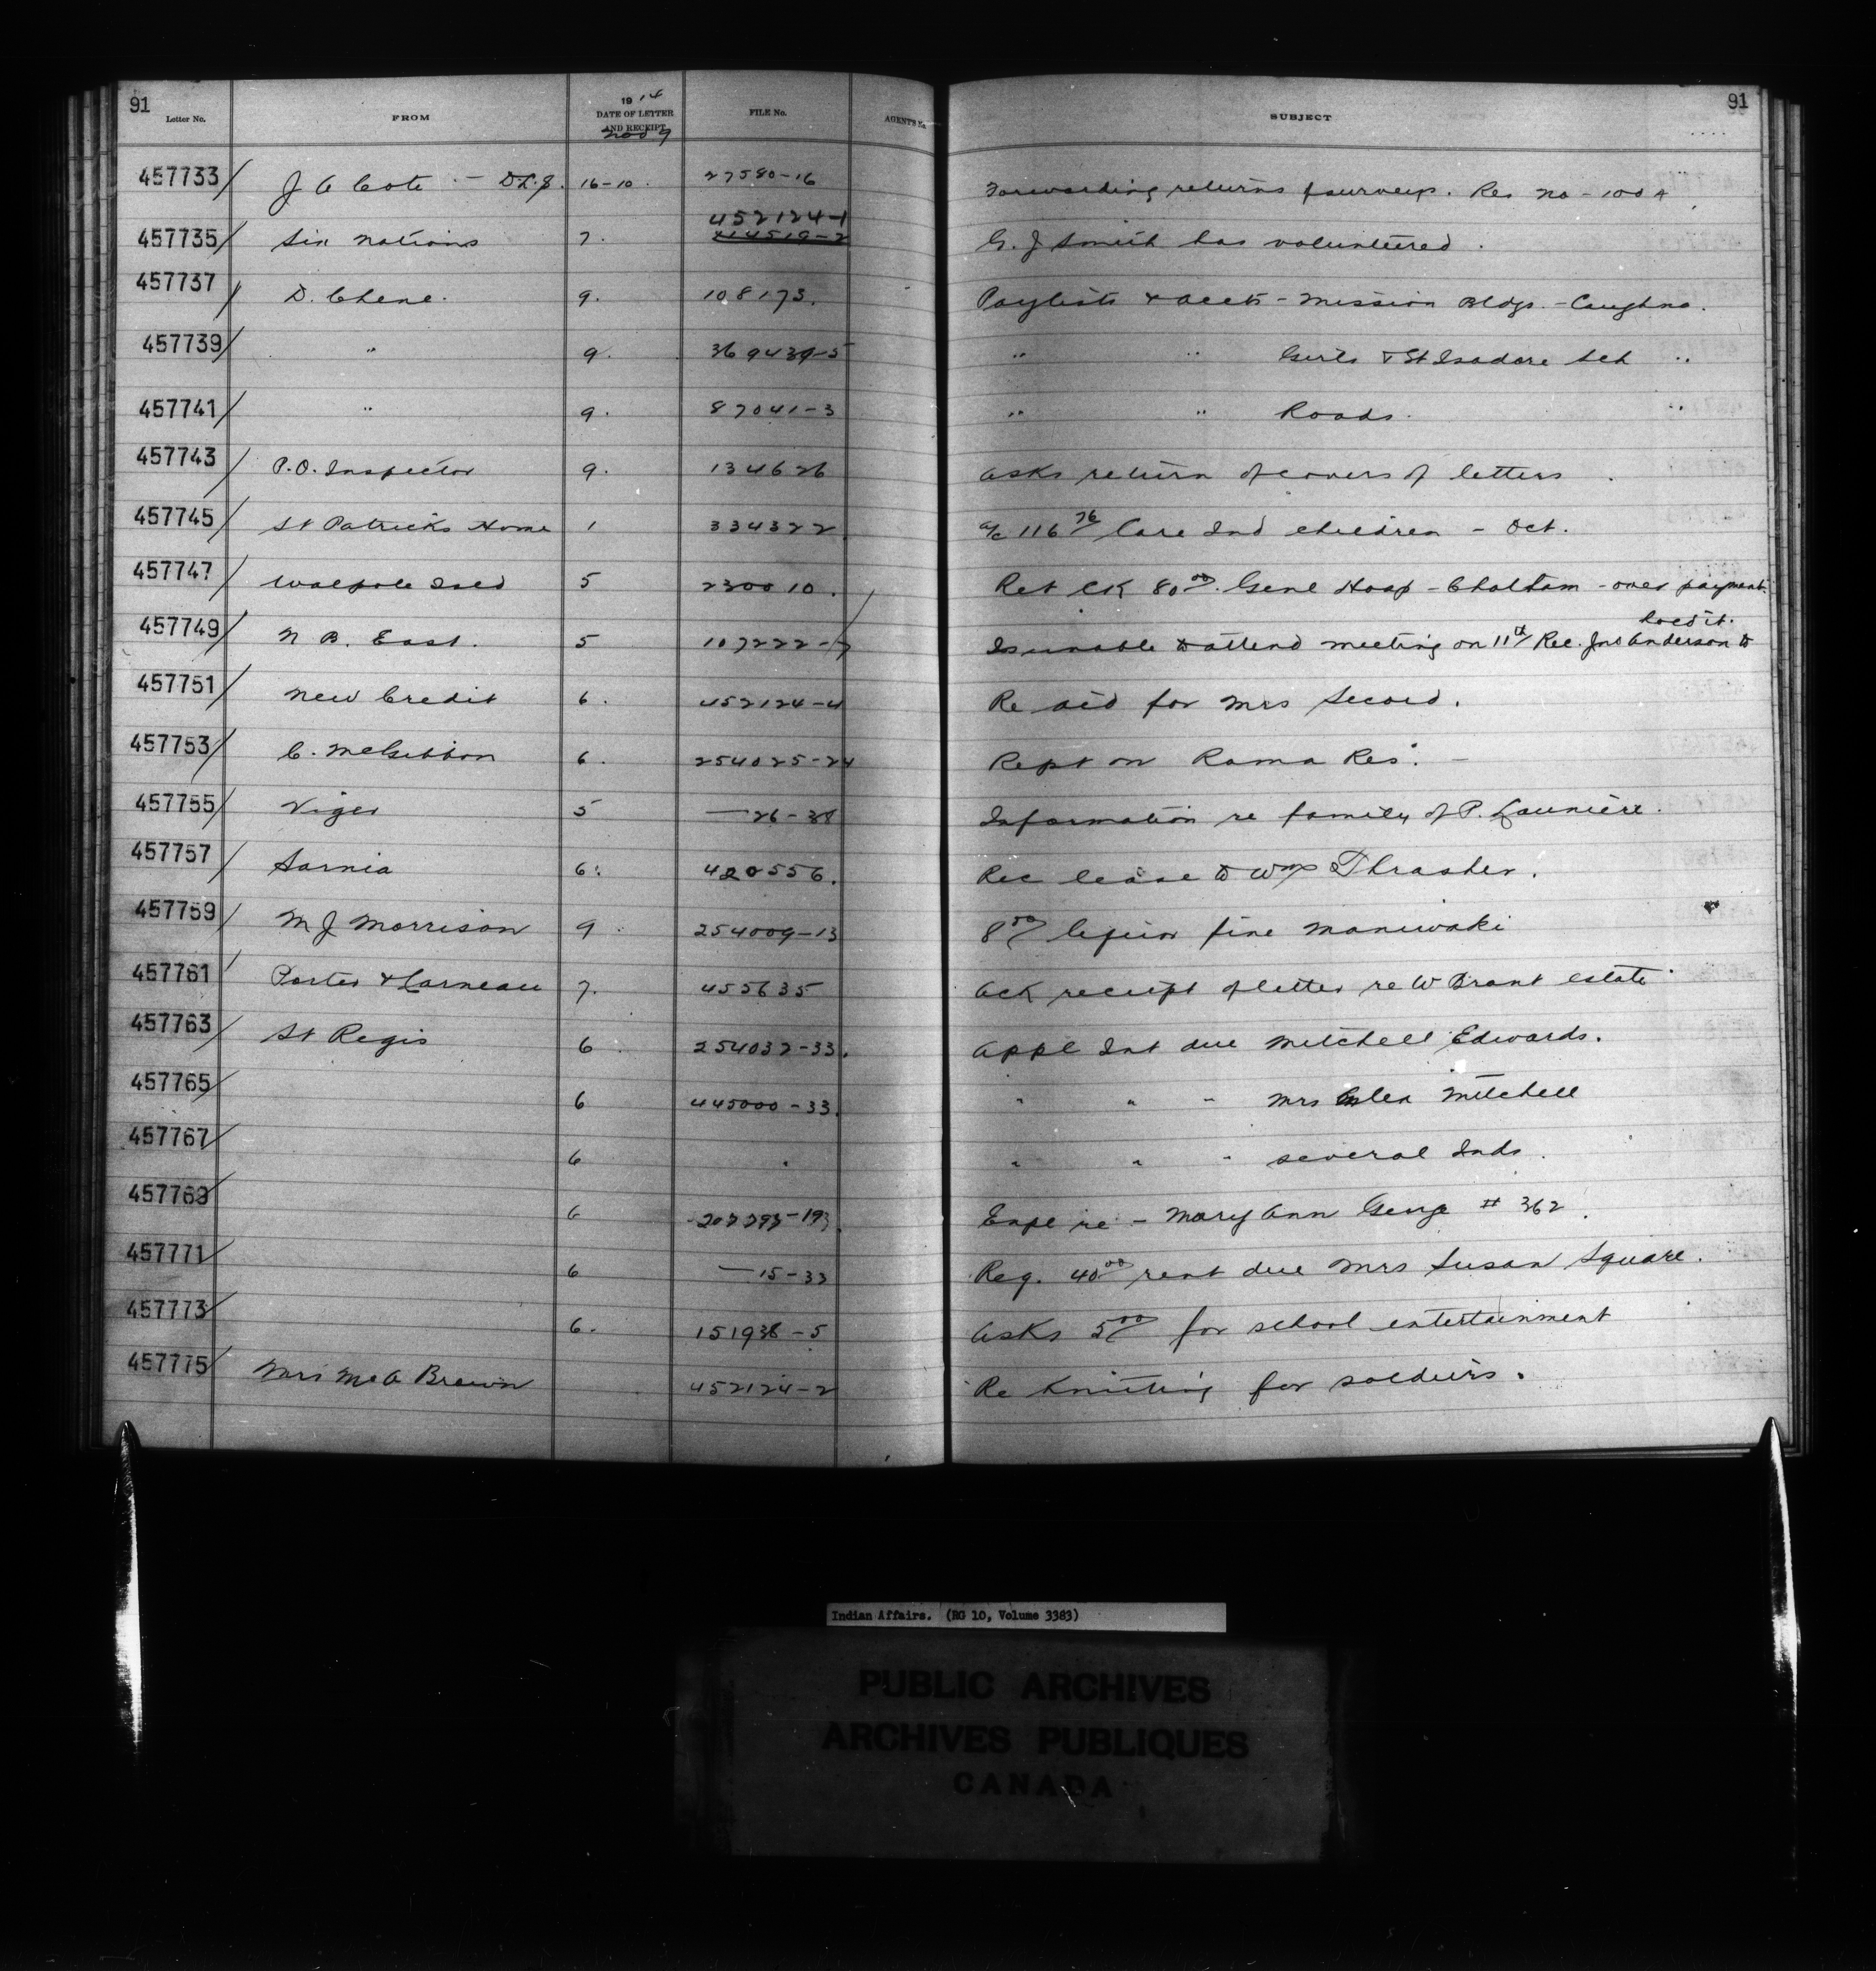 91 91
Letter No. FROM 1914 DATE OF LETTER AND RECEIPT FILE No. AGENT'S No. SUBJECT
Nov 9
457733 J A Cote - D.L.S. 16-10 27580-16 Forwarding returns of survey. Res No - 100 A
452124-1
457735 Six Nations 7. G. J Smith has volunteered.
457737 D. Chene. 9. 108173. Paylists & accts - Mission Bldgs. - Caughna.
457739 " 9. 369439-5 " " Girls & St Isadore Sch "
457741 " 9. 87041-3 " " Roads. "
457743 P.O. Inspector 9. 134626 Asks return of covers of letters.
457745 St Patricks Home 1 334322 a/c 116 76 Care Ind children - Oct.
457747 Walpole Isld 5 230010. Ret CK 80 00. Genl Hosp - Chatham - over payment.
457749 N B. East. 5 107222-7 Is unable to attend meeting on 11th Rec. Jno Anderson to
457751 New Credit 6. 452124-4 Re aid for Mrs Secord.
457753 C. McGibbon 6. 254025-24 Rept on Rama Res. -
457755 Viger 5 — 26-38 Information re family of P. Launiere.
457757 Sarnia 6. 420556. Rec lease to Wm Thrasher.
457759 M J Morrison 9 254009-13 8 50 liquor fine Maniwaki
457761 Porter & Carneau 7. 455635 Ack receipt of letter re W Brant estate
457763 St Regis 6 254032-33. Appl Int due Mitchell Edwards.
457765 6 445000-33. " " " Mrs Mitchell
457767 6 " " " " several Inds.
457769 6 207293-193. Expl re - Mary Ann George # 362.
457771 6 — 15-33 Reg. 40 00 rent due Mrs Susan Square.
457773 6. 151938-5 Asks 5 00 for school entertainment
457775 Mrs McA Brown 452124-2 Re Knitting for soldiers.
Indian Affairs. (RG 10, Volume 3383)
PUBLIC ARCHIVES
ARCHIVES PUBLIQUES
CANADA